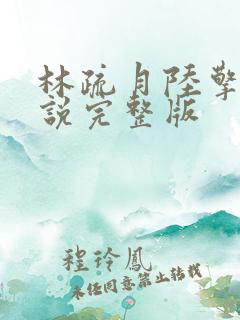 林疏月陸擎
說完整版
程玲鳳
未经同意禁止转载